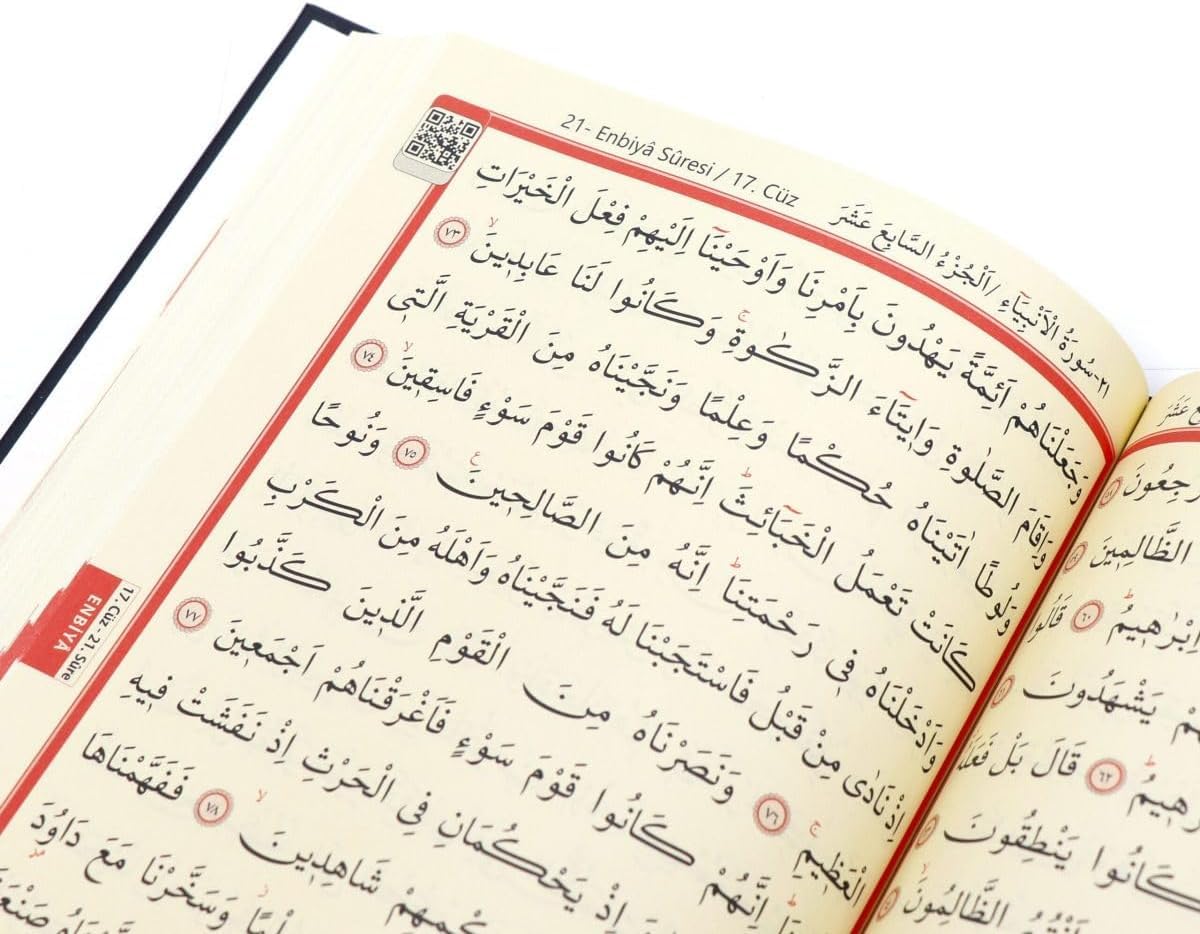 21- Enbiyâ Sûresi / 17. Cüz
٢١-سُورَةُ الْاَنْبِيَٓاءِ /اَلْجُزْءُ السَّابِعَ عَشَرَ
وَجَعَلْنَاهُمْ اَئِمَّةً يَهْدُونَ بِاَمْرِنَا وَاَوْحَيْنَٓا اِلَيْهِمْ فِعْلَ الْخَيْرَاتِ
وَاِقَامَ الصَّلٰوةِ وَا۪يتَٓاءَ الزَّكٰوةِۚ وَكَانُوا لَنَا عَابِد۪ينَۙ ﴿٧٣﴾
وَلُوطًا اٰتَيْنَاهُ حُكْمًا وَعِلْمًا وَنَجَّيْنَاهُ مِنَ الْقَرْيَةِ الَّت۪ى
كَانَتْ تَعْمَلُ الْخَبَٓائِثَۜ اِنَّهُمْ كَانُوا قَوْمَ سَوْءٍ فَاسِق۪ينَۙ ﴿٧٤﴾
وَاَدْخَلْنَاهُ ف۪ى رَحْمَتِنَاۜ اِنَّهُ مِنَ الصَّالِح۪ينَ۟ ﴿٧٥﴾ وَنُوحًا
اِذْ نَادٰى مِنْ قَبْلُ فَاسْتَجَبْنَا لَهُ فَنَجَّيْنَاهُ وَاَهْلَهُ مِنَ الْكَرْبِ
الْعَظ۪يمِۚ ﴿٧٦﴾ وَنَصَرْنَاهُ مِنَ الْقَوْمِ الَّذ۪ينَ كَذَّبُوا
اِنَّهُمْ كَانُوا قَوْمَ سَوْءٍ فَاَغْرَقْنَاهُمْ اَجْمَع۪ينَ ﴿٧٧﴾
اِذْ يَحْكُمَانِ فِي الْحَرْثِ اِذْ نَفَشَتْ ف۪يهِ
شَاهِد۪ينَۙ ﴿٧٨﴾ فَفَهَّمْنَاهَا
وَسَخَّرْنَا مَعَ دَاوُ۫دَ
17. Cüz - 21. Sûre
ENBİYA
الظَّالِم۪ينَ
اِبْرٰه۪يمُۜ ﴿٦٠﴾ قَالُوا
يَشْهَدُونَ
﴿٦٢﴾ قَالَ بَلْ فَعَلَهُ
كَانُوا يَنْطِقُونَ
الظَّالِمُونَۙ